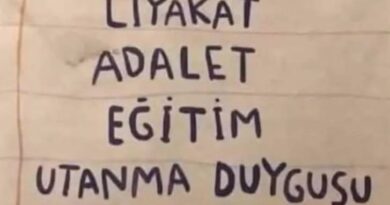 LİYAKAT
ADALET
EĞİTİM
UTANMA DUYGUSU